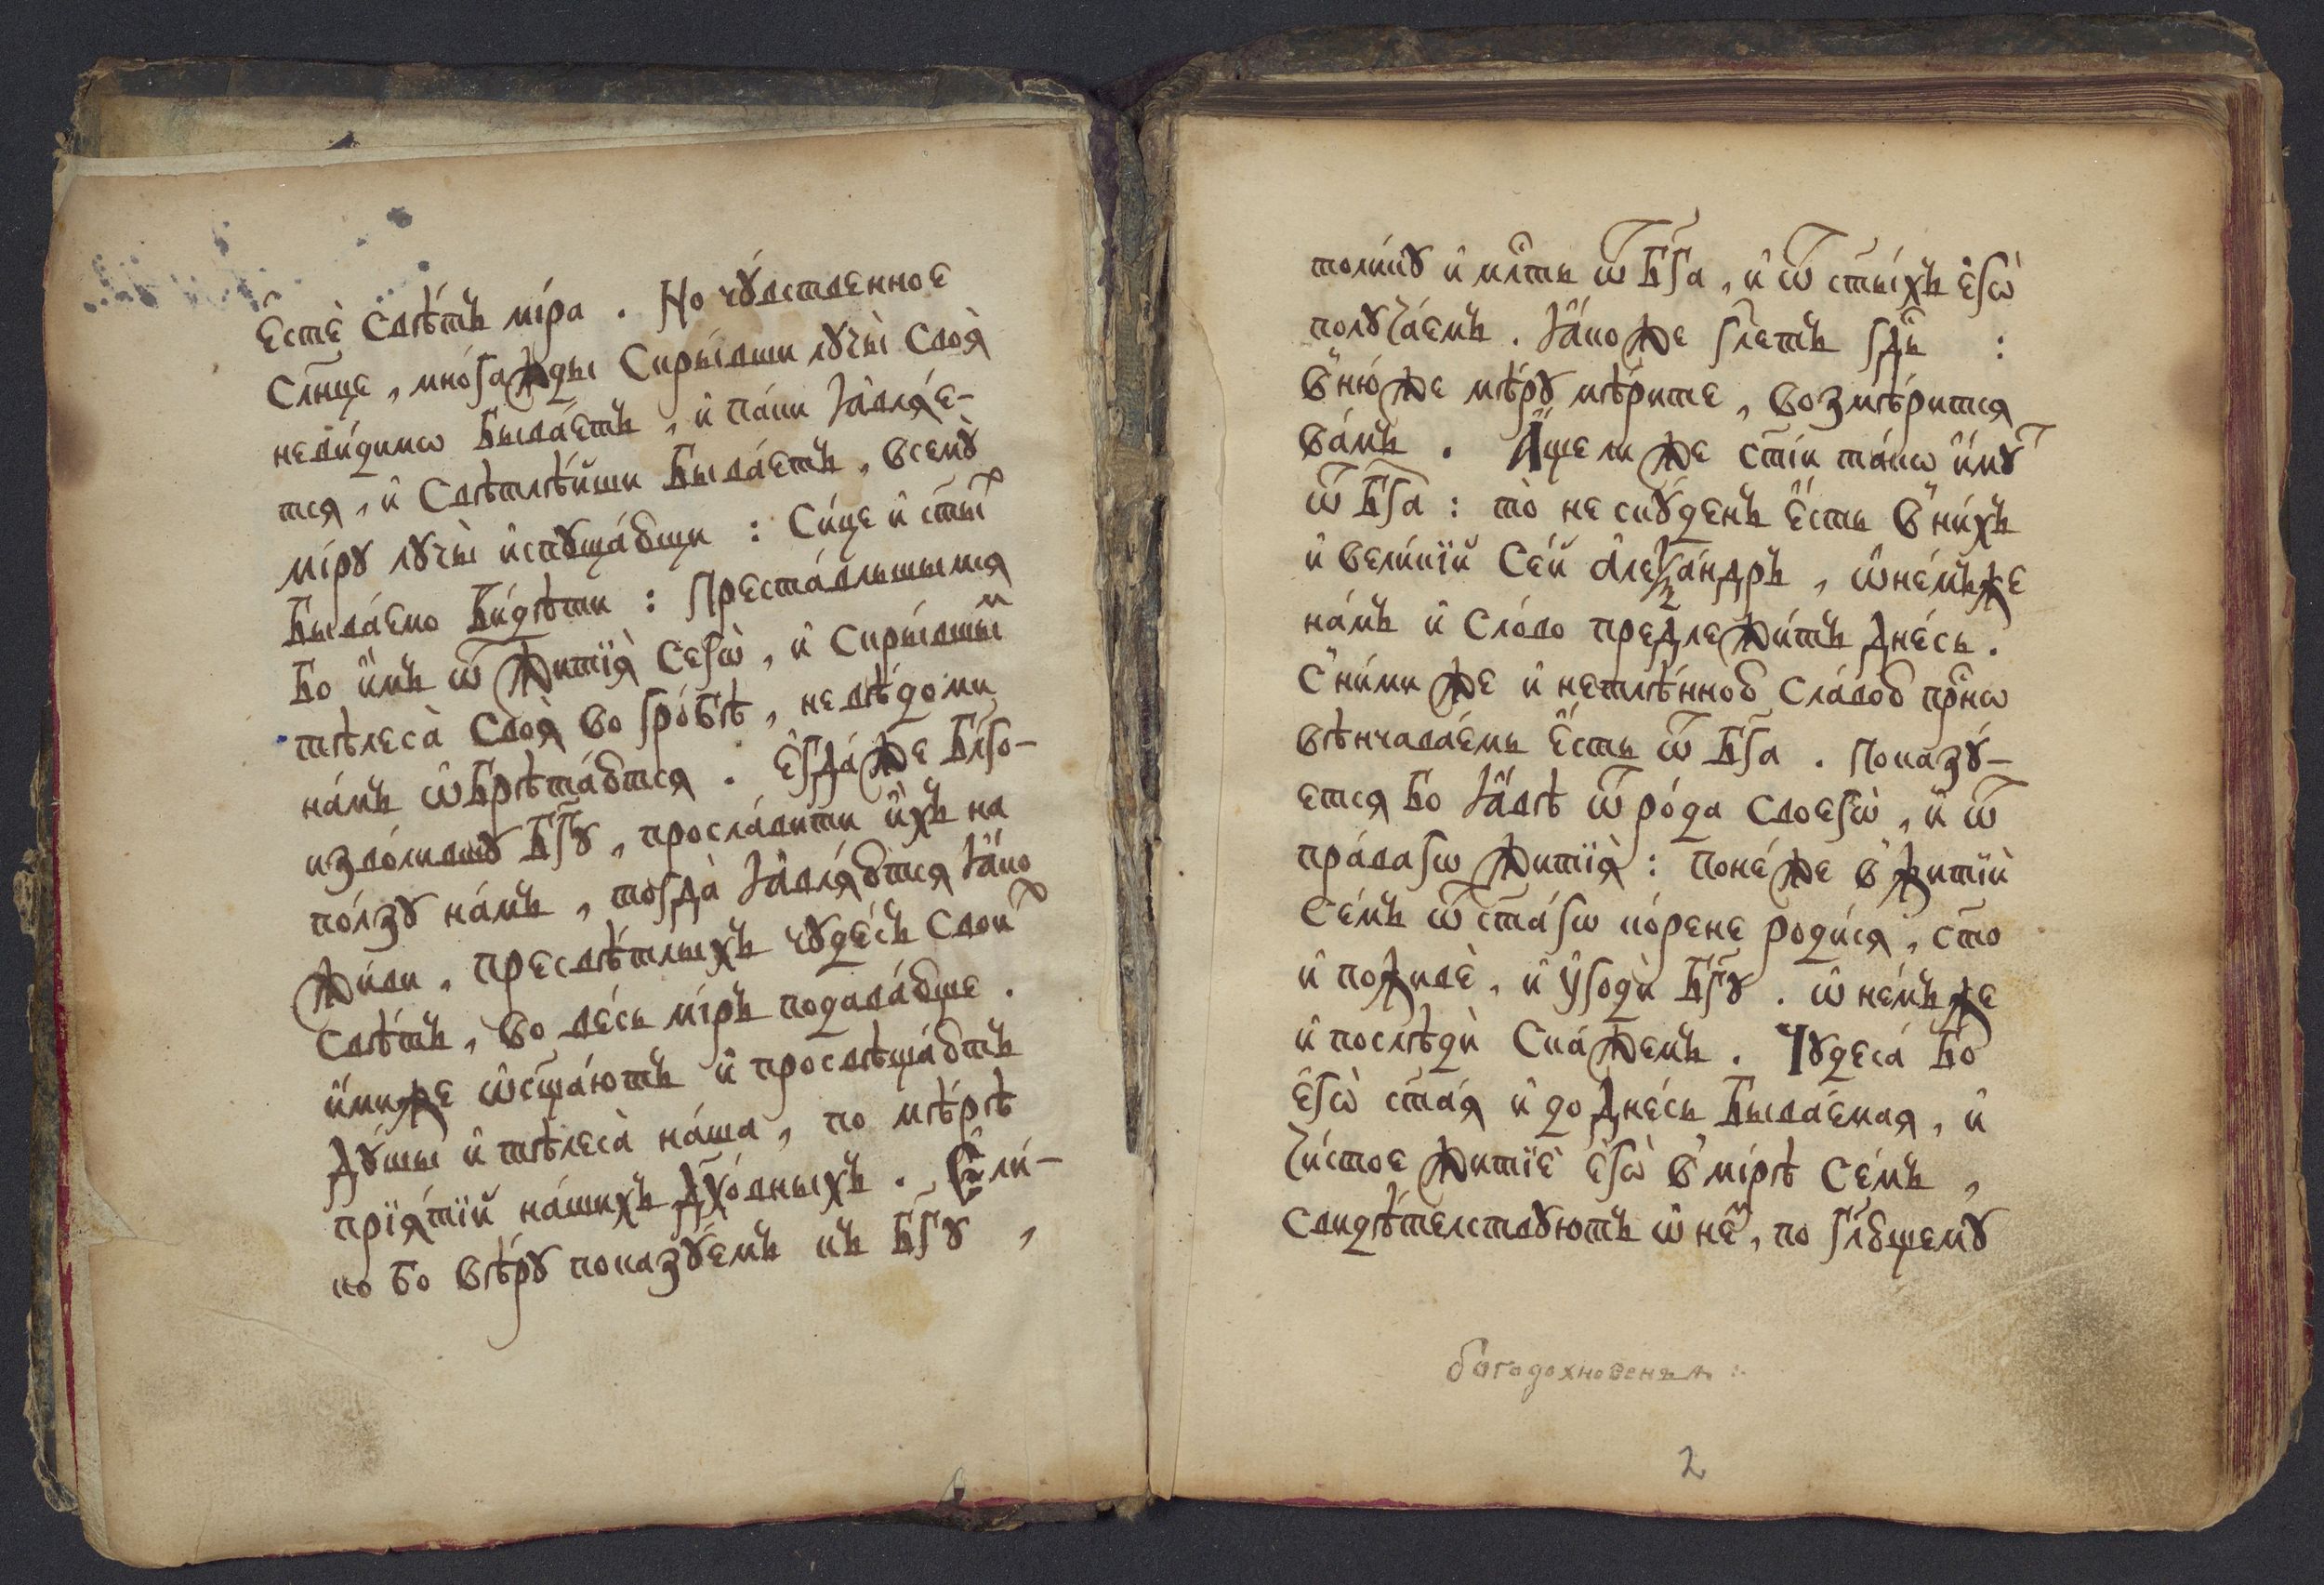 є҆стѐ свѣ́тъ мі́ра . Но чꙋ́вственное
сл҃нце , мно́гажды скры́вши лꙋчы̀ своѧ̀
неви́димѡ быва́етъ , и҆ па́ки ꙗ҆влѧ́е-
тсѧ , и҆ свѣтлѣ́йши быва́етъ , всемꙋ̀
мі́рꙋ лꙋчы̀ и҆спꙋща́ющи : Си́це и҆ ст҃ыⷯ
быва́емо ви́дѣти : Преста́вльшымсѧ
бо и҆̀мъ ѿ житїѧ̀ сегѡ̀ , и҆ скры́вшыⷨ
тѣлеса̀ своѧ̀ во гро́бѣ , невѣ́доми
на́мъ ѡ҆брѣта́ютсѧ . Є҆гда́же бл҃го-
изво́лившꙋ бг҃ꙋ , просла́вити и҆̀хъ на
по́лзꙋ на́мъ , тогда̀ ꙗ҆влѧ́ютсѧ ꙗ҆́ко
жи́ви , пресвѣ́тлыхъ чꙋде́съ своиⷯ
свѣ́тъ , во ве́сь мі́ръ подава́юще .
и҆́миже ѡ҆сщ҃а́ютъ и҆ просвѣща́ютъ
дꙋ́шы и҆ тѣлеса̀ на́ша , по мѣ́рѣ
прїѧ́тїй на́шихъ дх҃о́вныхъ . Є҆ли́-
ко бо вѣ́рꙋ показꙋ́емъ къ бг҃ꙋ ,
толи́кꙋ и҆ мл҃ть ѿ бг҃а , и҆ ѿ ст҃ы́хъ є҆гѡ̀
полꙋча́емъ . ꙗ҆́коже гл҃етъ гд҃ь :
в̾ ню́же мѣ́рꙋ мѣ́рите , возмѣ́ритсѧ
ва́мъ . А҆́щели же ст҃і́и та́кѡ и҆́мꙋⷮ
ѿ бг҃а : то̀ не скꙋ́денъ є҆́сть в̾ ни́хъ
и҆ вели́кїй се́й а҆леѯа́ндръ , ѡ҆ не́мъже
на́мъ и҆ сло́во предлежи́тъ дне́сь .
с̾ ни́ми же и҆ нетлѣ́нною сла́вою пр҃нѡ
вѣнчава́емь є҆́сть ѿ бг҃а . Показꙋ́-
етсѧ бо ꙗ҆́вѣ ѿ ро́да своегѡ̀ , и҆ ѿ
пра́вагѡ житїѧ̀ : поне́же в̾ житїѝ
се́мъ ѿ ст҃а́гѡ ко́рене роди́сѧ , ст҃о
и҆ поживѐ , и҆ ᲂу҆годѝ бг҃ꙋ . ѡ҆ не́мъже
и҆ послѣдѝ ска́жемъ . Чꙋдеса́ бо
є҆гѡ̀ ст҃а́ѧ и҆ до дне́сь быва́емаѧ , и҆
чи́стое житїѐ є҆гѡ̀ в̾ мі́рѣ се́мъ ,
свидѣ́телствꙋютъ ѡ҆ неⷨ , по гл҃ющемꙋ
богодохновенъ
2